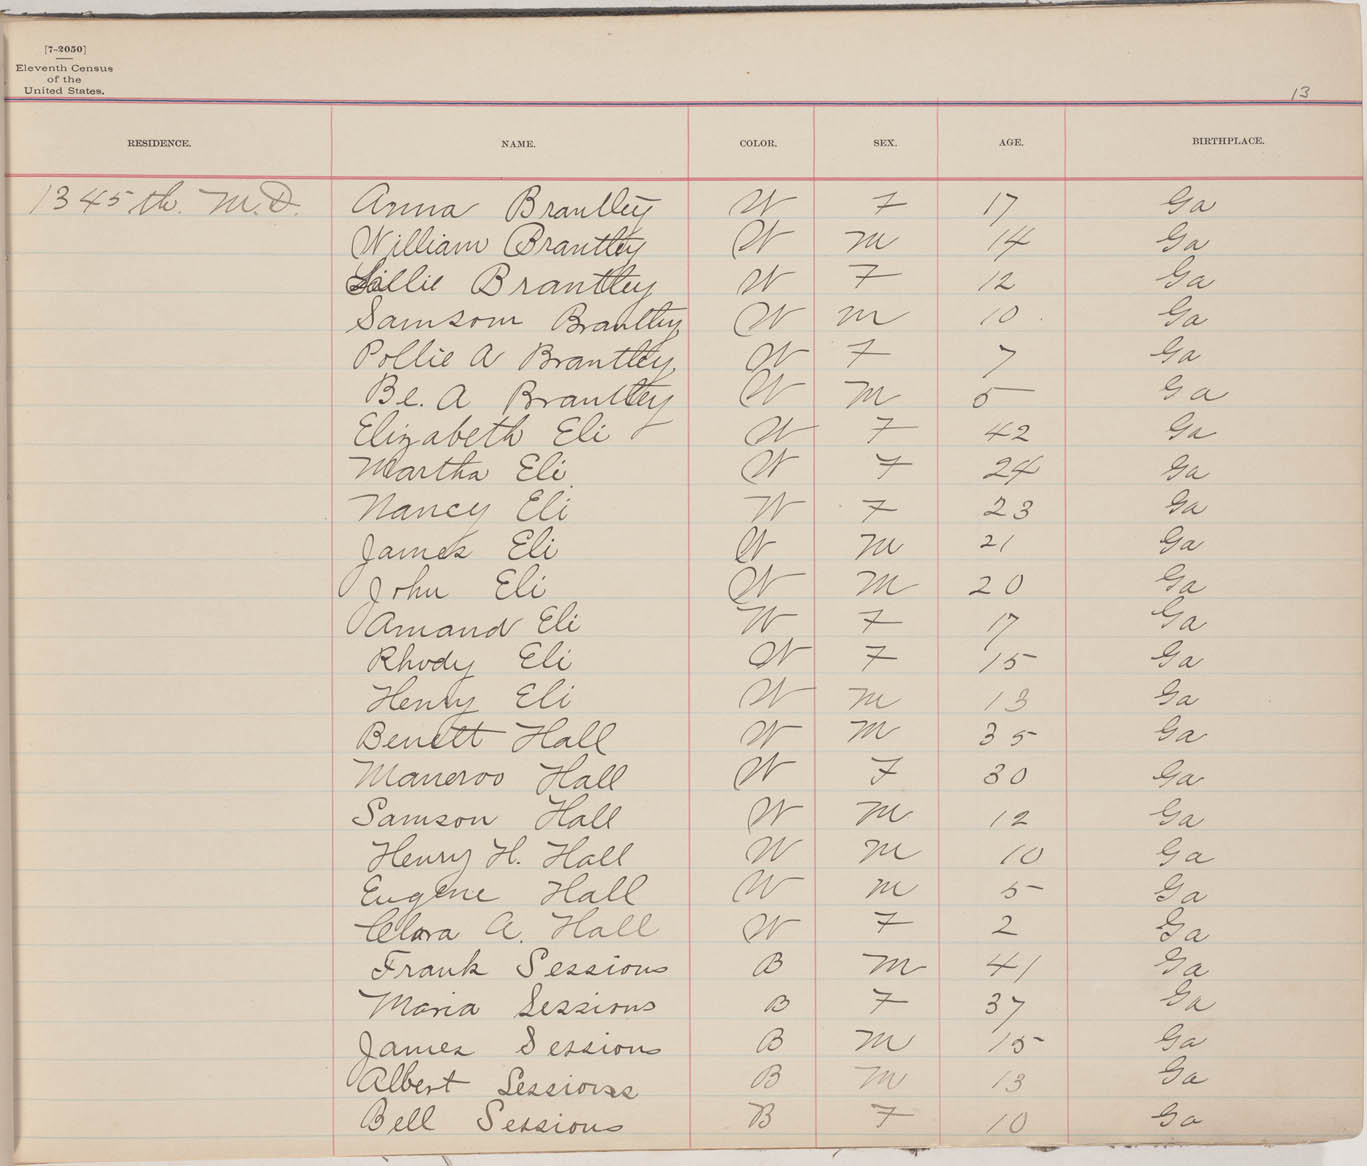 [7-2050]
Eleventh Census
of the
United States.
13
RESIDENCE. NAME. COLOR. SEX. AGE. BIRTHPLACE.
1345th. M.D. Anna Brantley W F 17 Ga
William Brantley W M 14 Ga
Lillie Brantley W F 12 Ga
Samsom Brantley W M 10 Ga
Pollie A Brantley W F 7 Ga
Be. A Brantley W M 5 Ga
Elizabeth Eli W F 42 Ga
Martha Eli W F 24 Ga
Nancy Eli W F 23 Ga
James Eli W M 21 Ga
John Eli W M 20 Ga
Amand Eli W F 17 Ga
Rhody Eli W F 15 Ga
Henry Eli W M 13 Ga
Benett Hall W M 35 Ga
Maneroo Hall W F 30 Ga
Samson Hall W M 12 Ga
Henry H. Hall W M 10 Ga
Eugene Hall W M 5 Ga
Clara A. Hall W F 2 Ga
Frank Sessions B M 41 Ga
Maria Sessions B F 37 Ga
James Sessions B M 15 Ga
Albert Sessions B M 13 Ga
Bell Sessions B F 10 Ga